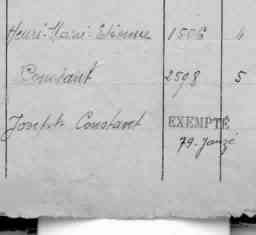 Henri-Marie-Etienne 1506 4
Constant 2598 5
Joseph Constant EXEMPTÉ
79-Janzé